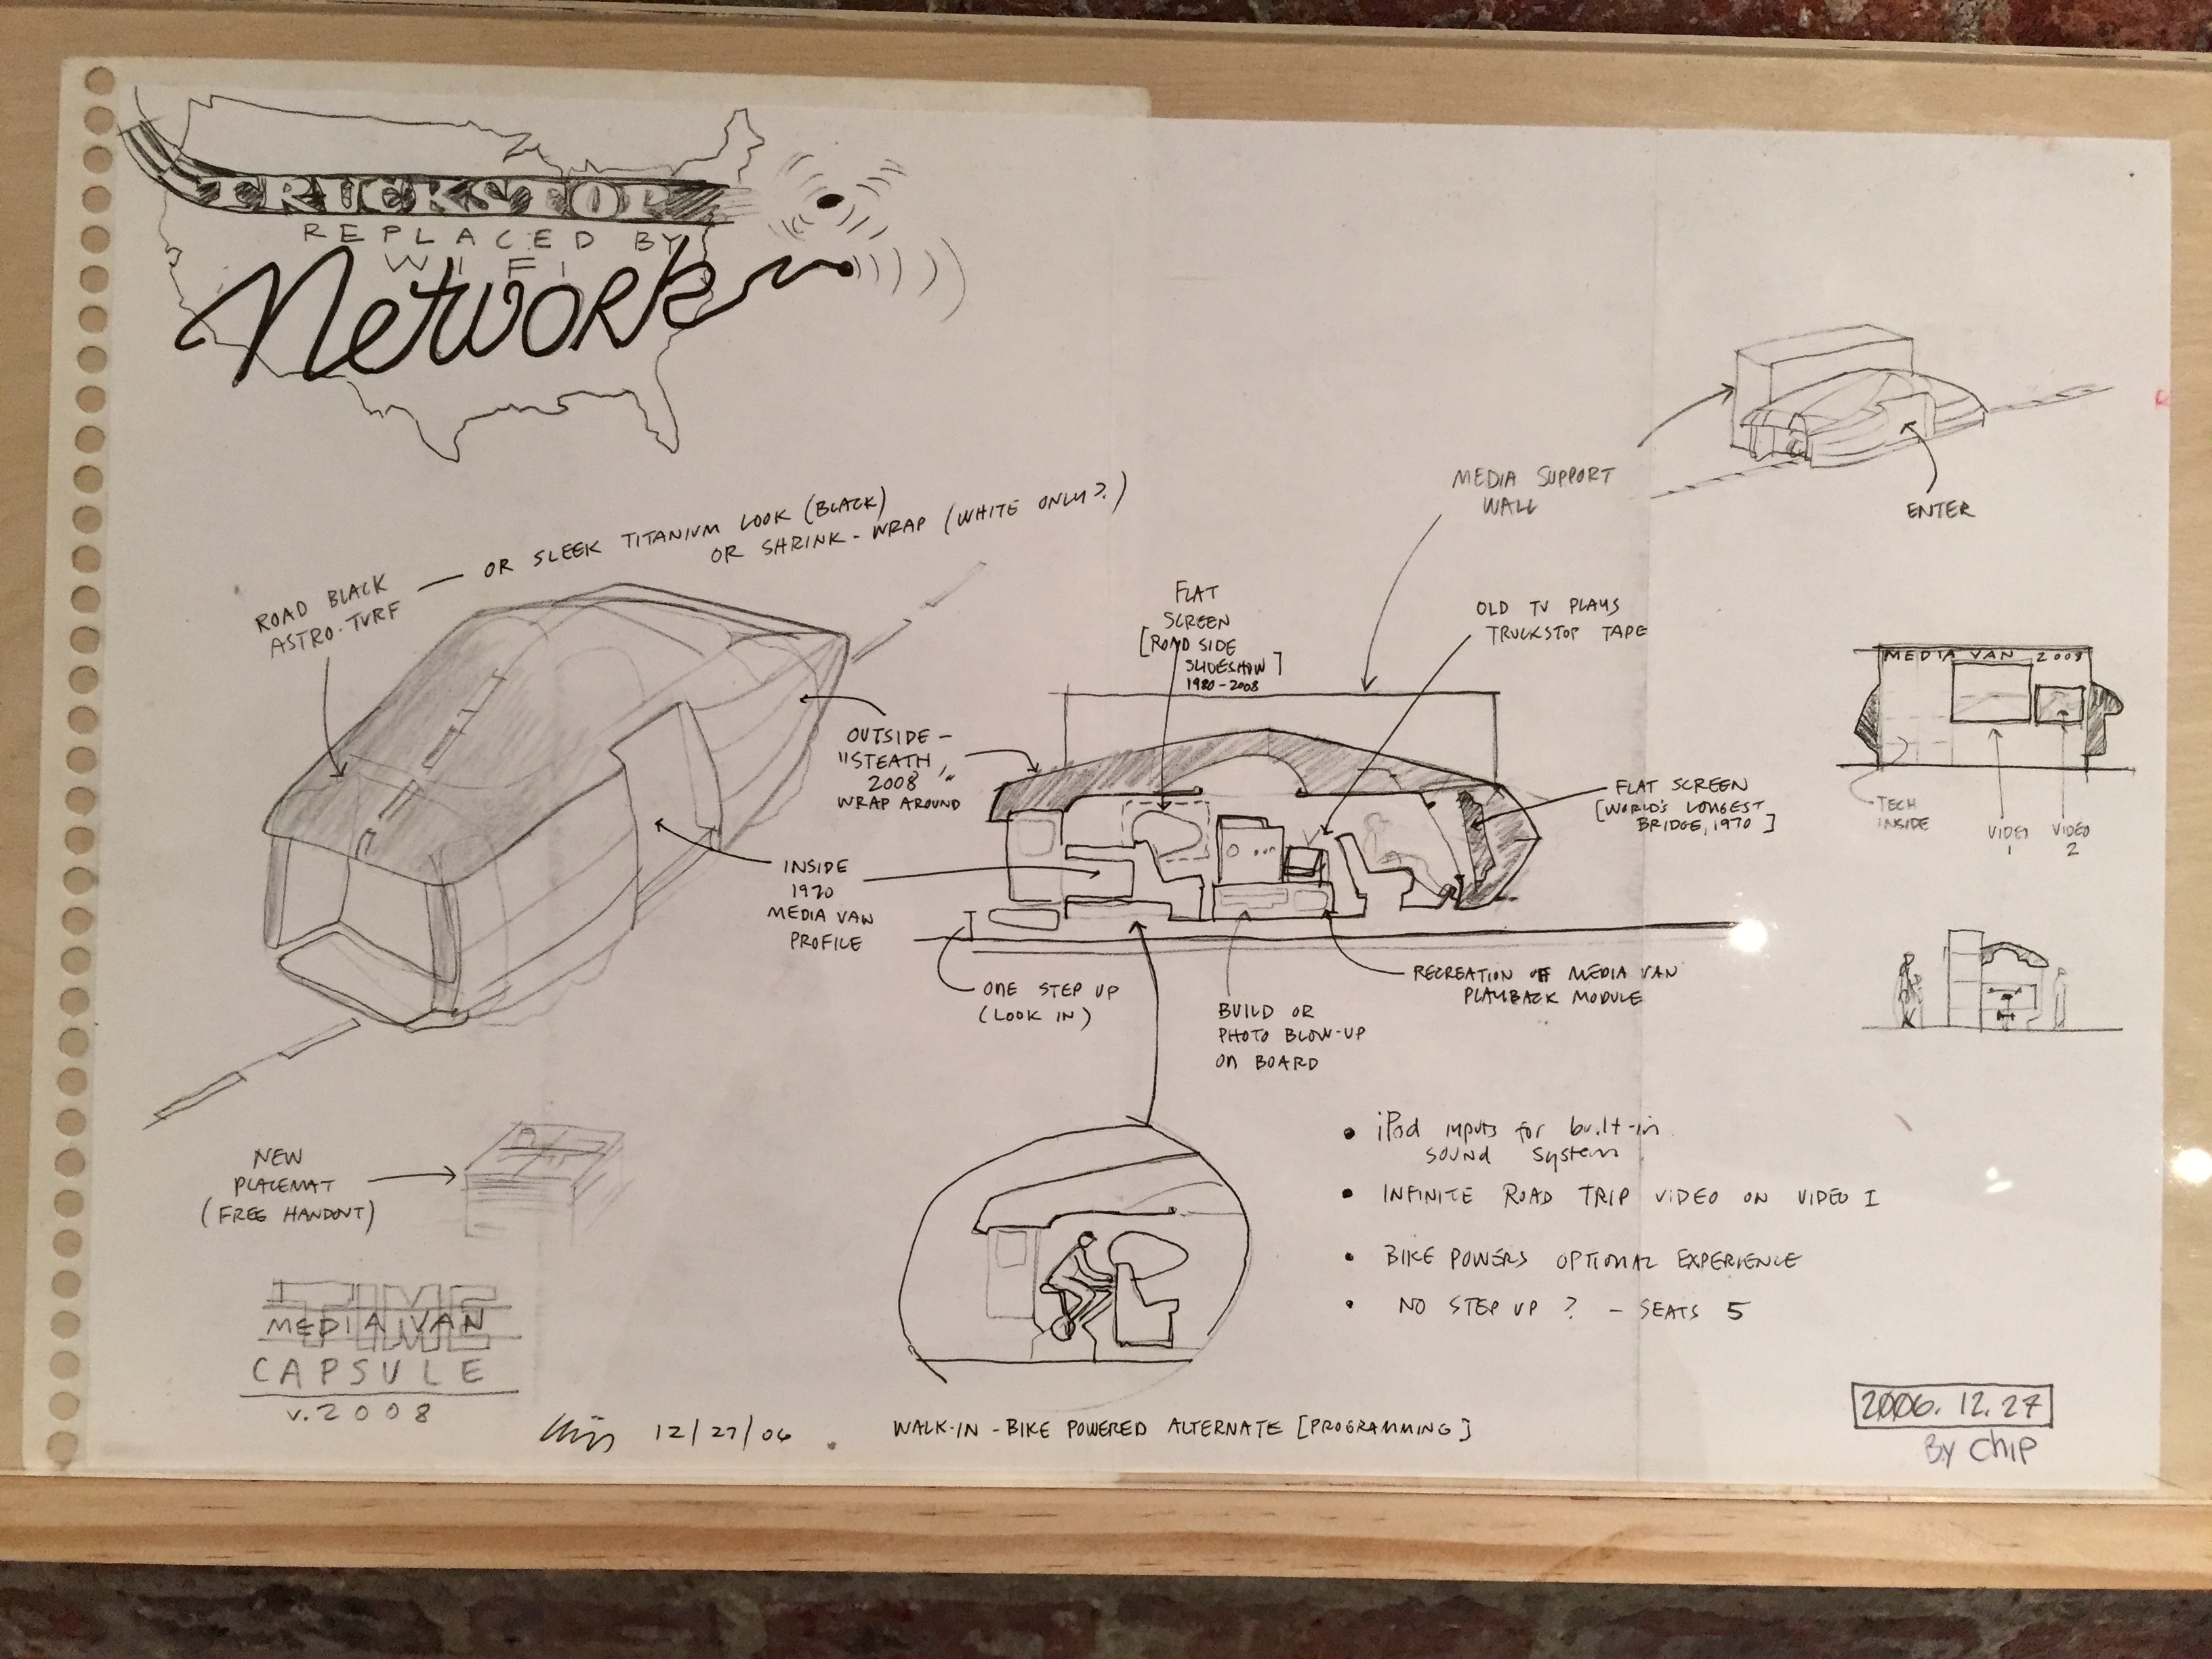 TRUCKSTOP
REPLACED BY
WIFI
Network
MEDIA SUPPORT
WALL
ENTER
ROAD BLACK
ASTRO-TURF
OR SLEEK TITANIUM LOOK (BLACK)
OR SHRINK-WRAP (WHITE ONLY?)
FLAT
SCREEN
[ROAD SIDE
SLIDESHOW]
1980-2008
OLD TV PLAYS
TRUCKSTOP TAPE
MEDIA VAN 2008
TECH
INSIDE
VIDEO
1
VIDEO
2
OUTSIDE -
"STEATH,"
2008
WRAP AROUND
FLAT SCREEN
[WORLD'S LONGEST
BRIDGE, 1970]
INSIDE
1970
MEDIA VAN
PROFILE
ONE STEP UP
(LOOK IN)
BUILD OR
PHOTO BLOW-UP
ON BOARD
RECREATION OF MEDIA VAN
PLAYBACK MODULE
NEW
PLACEMAT
(FREE HANDOUT)
• iPod inputs for built-in
sound system
• INFINITE ROAD TRIP VIDEO ON VIDEO 1
• BIKE POWERS OPTIONAL EXPERIENCE
• NO STEP UP? - SEATS 5
TIME
MEDIA VAN
CAPSULE
v.2008
Chip 12/27/06
WALK-IN - BIKE POWERED ALTERNATE [PROGRAMMING]
2006.12.27
By Chip